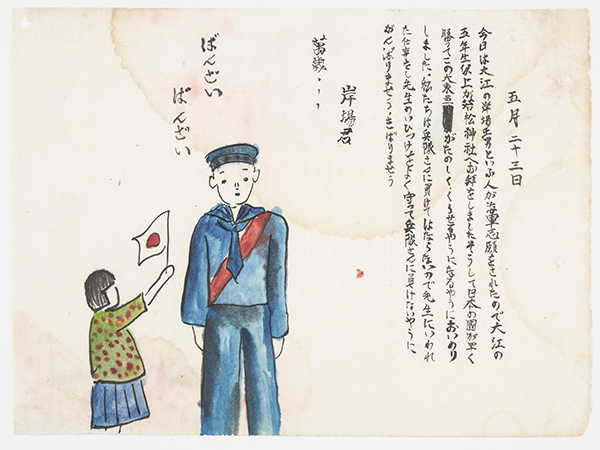 五月二十三日
今日は大江の岸場君といふ人が海軍志願をされたので大江の
五年生以上が若松神社へお詣をしましたそうして日本の國が早く
勝ってこの大東亜がたのしくくらせるやうになるやうにおいのり
しました。私たちは兵隊さんに負けてはならないので先生にいわれ
た仕事をし先生のいひつけをよく守って兵隊さんに負けないやうに
がんばりませう。きばりませう
岸場君
萬歳、、、
ばんざい
ばんざい